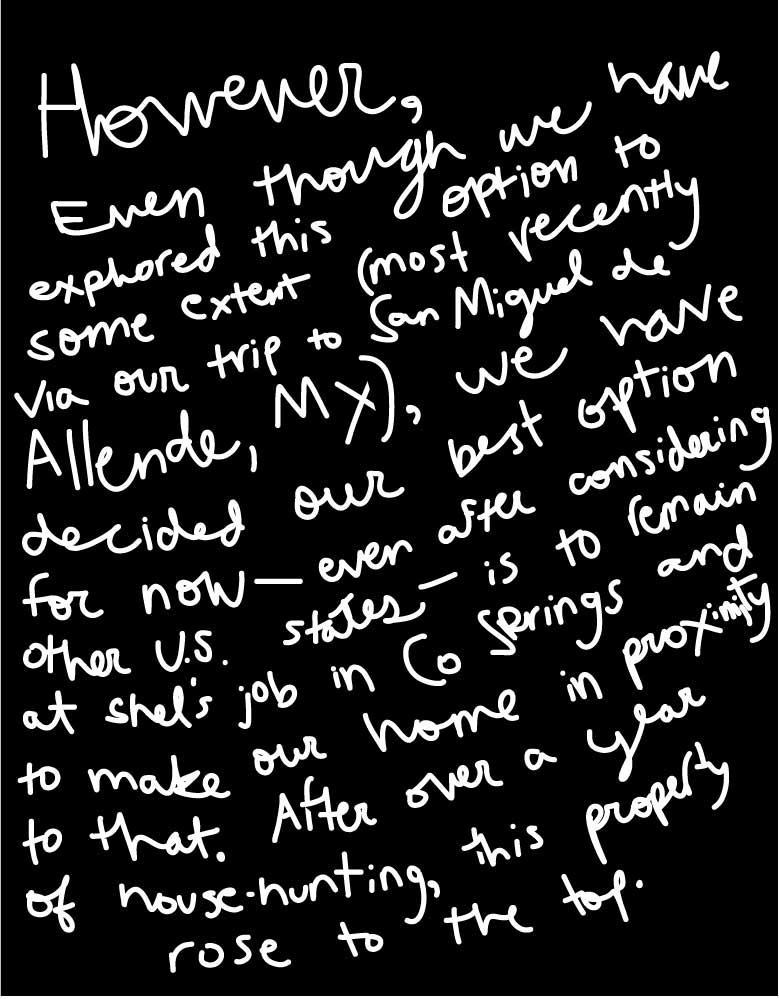 However,
Even though we have
explored this option to
some extent (most recently
via our trip to San Miguel de
Allende, MX), we have
decided our best option
for now — even after considering
other U.S. states — is to remain
at shel's job in Co Springs and
to make our home in proximity
to that. After over a year
of house-hunting, this property
rose to the top.